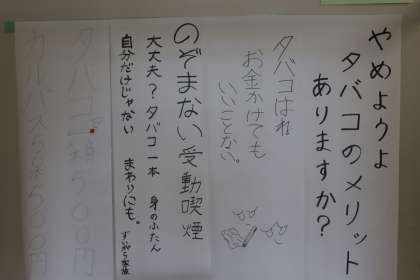 やめようよ
タバコのメリット
ありますか?
タバコはね
お金かけても
いいことない。
のぞまない受動喫煙
大丈夫?タバコ一本 身のふたん
自分だけじゃない まわりにも。
タバコ一箱500円